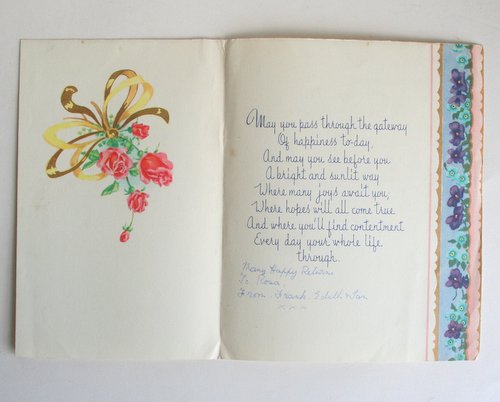 May you pass through the gateway
Of happiness to-day,
And may you see before you
A bright and sunlit way
Where many joys await you,
Where hopes will all come true
And where you'll find contentment
Every day your whole life
through.
Many Happy Returns
To Rosa.
From. Frank. Edith &
x x x